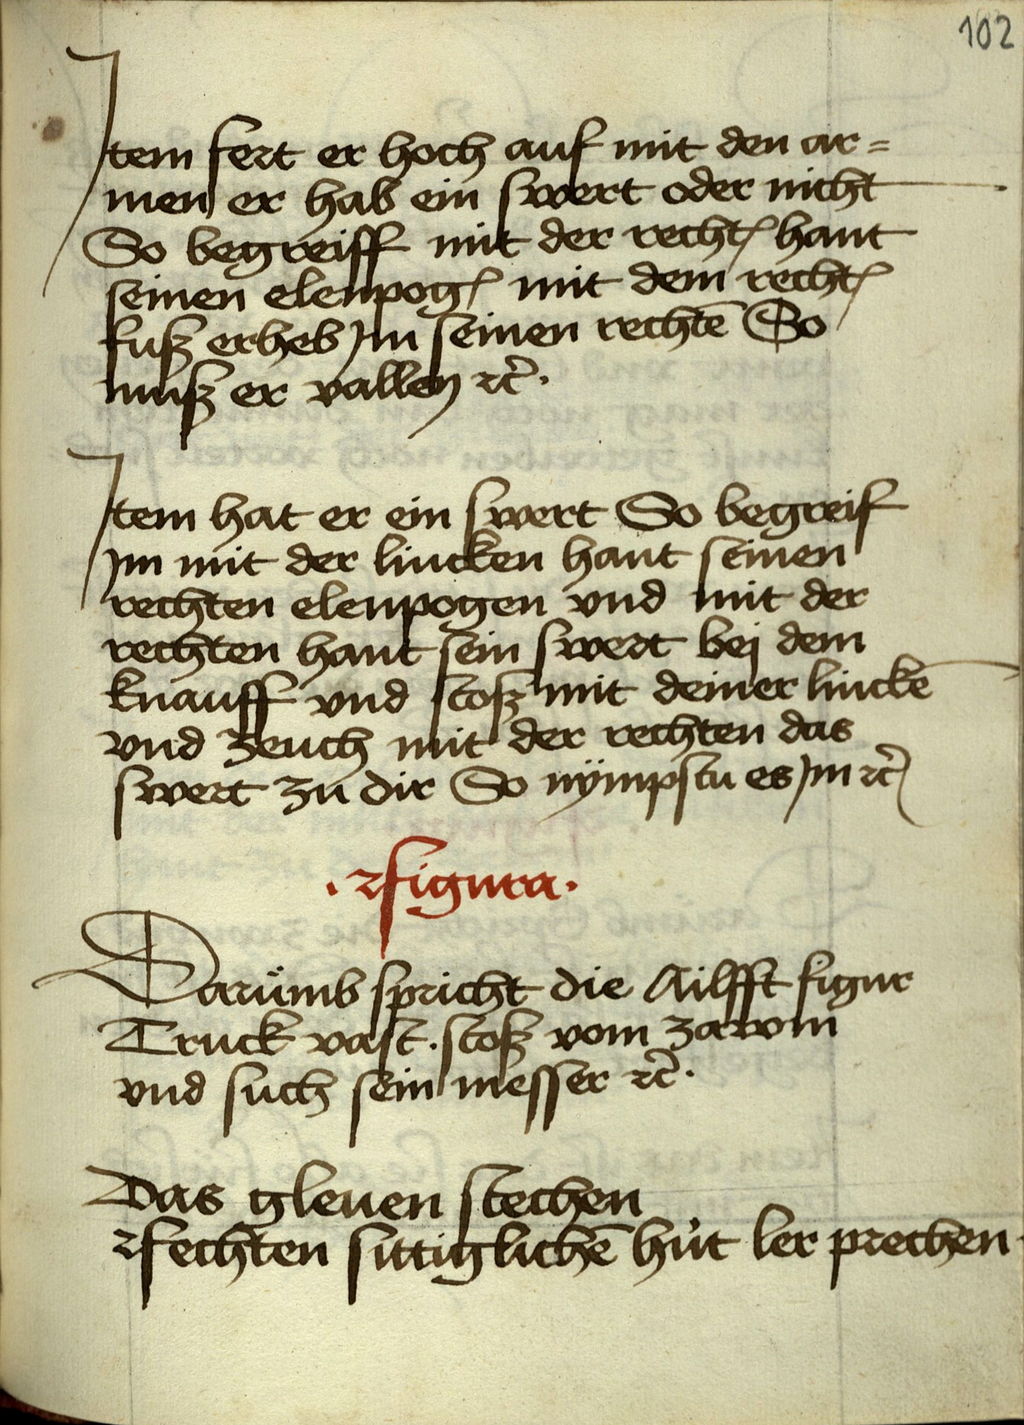 102
Item fert er hoch auf mit den ar=
men er hab ein swert oder nicht
So begreiff mit der rechtꝭ hant
seinen elenpogꝭ mit dem rechtꝭ
fuß erheb Im seinen rechtē So
muß er vallen ꝛc̄.
Item hat er ein swert So begreif
Im mit der lincken hant seinen
rechten elenpogen vnd mit der
rechten hant sein swert bej dem
knauff vnd stoß mit deiner linckē
vnd zeuch mit der rechten das
swert zu dir So nÿmpstu es Im ꝛc̄
. Figura .
Darümb spricht die Ailfft figur
Truck vast . stoß vom zawm
vnd such sein messer ꝛc̄.
Das gleuen stechen
Fechten sittiglichē hut ler prechen